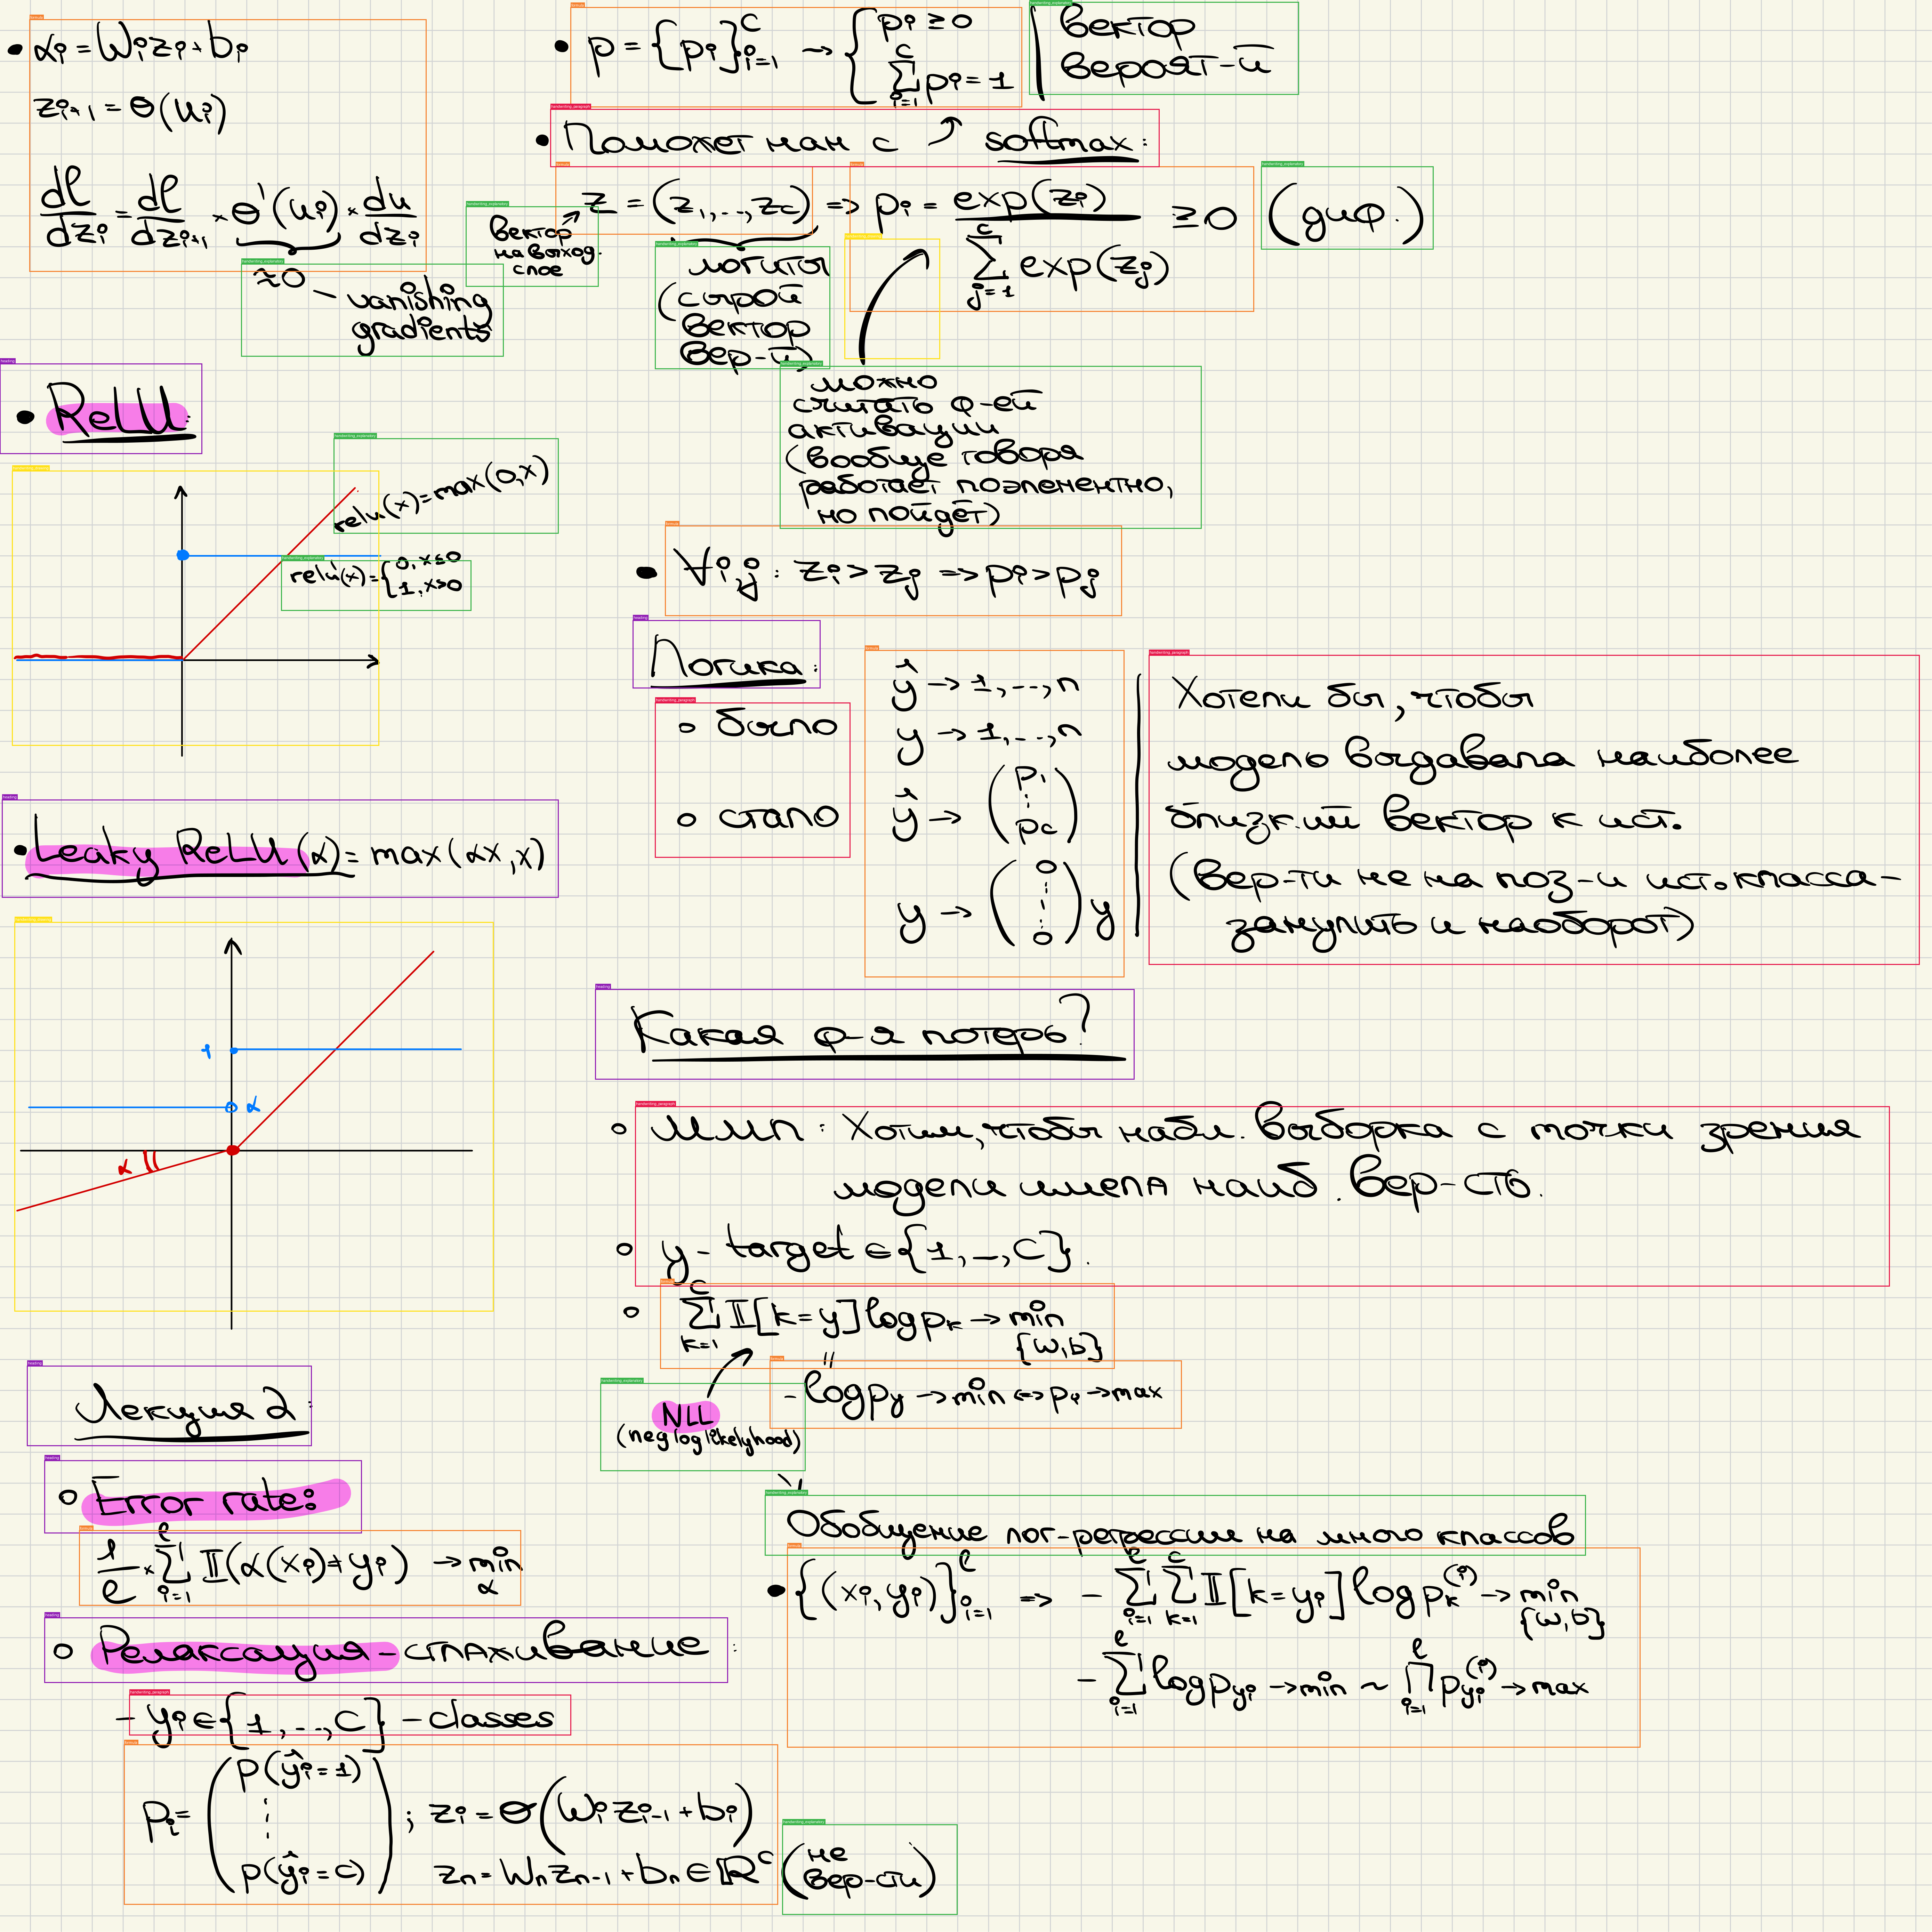 • αi = Wi zi + bi
zi+1 = σ(ui)
dℓ/dzi = dℓ/dzi+1 × σ'(ui) × du/dzi
≈0 – vanishing
gradients
• ReLU:
relu(x) = max(0,x)
relu'(x) = { 0, x≤0
1, x>0
• Leaky ReLU(α) = max(αx, x)
1
α
α
Лекция 2:
∘ Error rate:
1/ℓ × ∑_{i=1}^{ℓ} 𝕀(α(xi) ≠ yi) → min_α
∘ Релаксация – сглаживание:
– yi ∈ {1,...,C} – classes
pi = ( p(ŷi = 1) ⋮ p(ŷi = C) ) ; zi = σ(Wi zi-1 + bi)
zn = Wn zn-1 + bn ∈ ℝ^C (не
вер-сти)
• p = {pi}_{i=1}^{C} → { pi ≥ 0
∑_{i=1}^{C} pi = 1
вектор
вероят-й
• Поможет нам с ↗ softmax:
z = (z1,...,zc) => pi = exp(zi) / ∑_{j=1}^{C} exp(zj) ≥ 0 (диф.)
вектор
на выход.
слое
логиты
(сырой
вектор
вер-й)
можно
считать ф-ей
активации
(вообще говоря
работает поэлементно,
но пойдёт)
• ∀i,j : zi > zj => pi > pj
Логика:
∘ было
ŷ → 1,...,n
y → 1,...,n
∘ стало
ŷ → ( p1 ⋮ pc )
y → ( 0 ⋮ 0 ) y
Хотели бы, чтобы
модель выдавала наиболее
близкий вектор к ист.
(вер-ти не на поз-и ист. класса –
занулить и наоборот)
Какая ф-я потерь?
∘ ММП : Хотим, чтобы набл. выборка с точки зрения
модели имела наиб. вер-сть.
∘ y – target ∈ {1,...,C}.
∘ ∑_{k=1}^{C} 𝕀[k=y] log pk → min_{w,b}
=
– log py → min <=> pi → max
NLL
(neg log likelyhood)
Обобщение лог-регрессии на много классов
• {(xi, yi)}_{i=1}^{ℓ} => – ∑_{i=1}^{ℓ} ∑_{k=1}^{C} 𝕀[k=yi] log pk^(i) → min_{w,b}
– ∑_{i=1}^{ℓ} log pyi → min ~ ∏_{i=1}^{ℓ} pyi^(i) → max